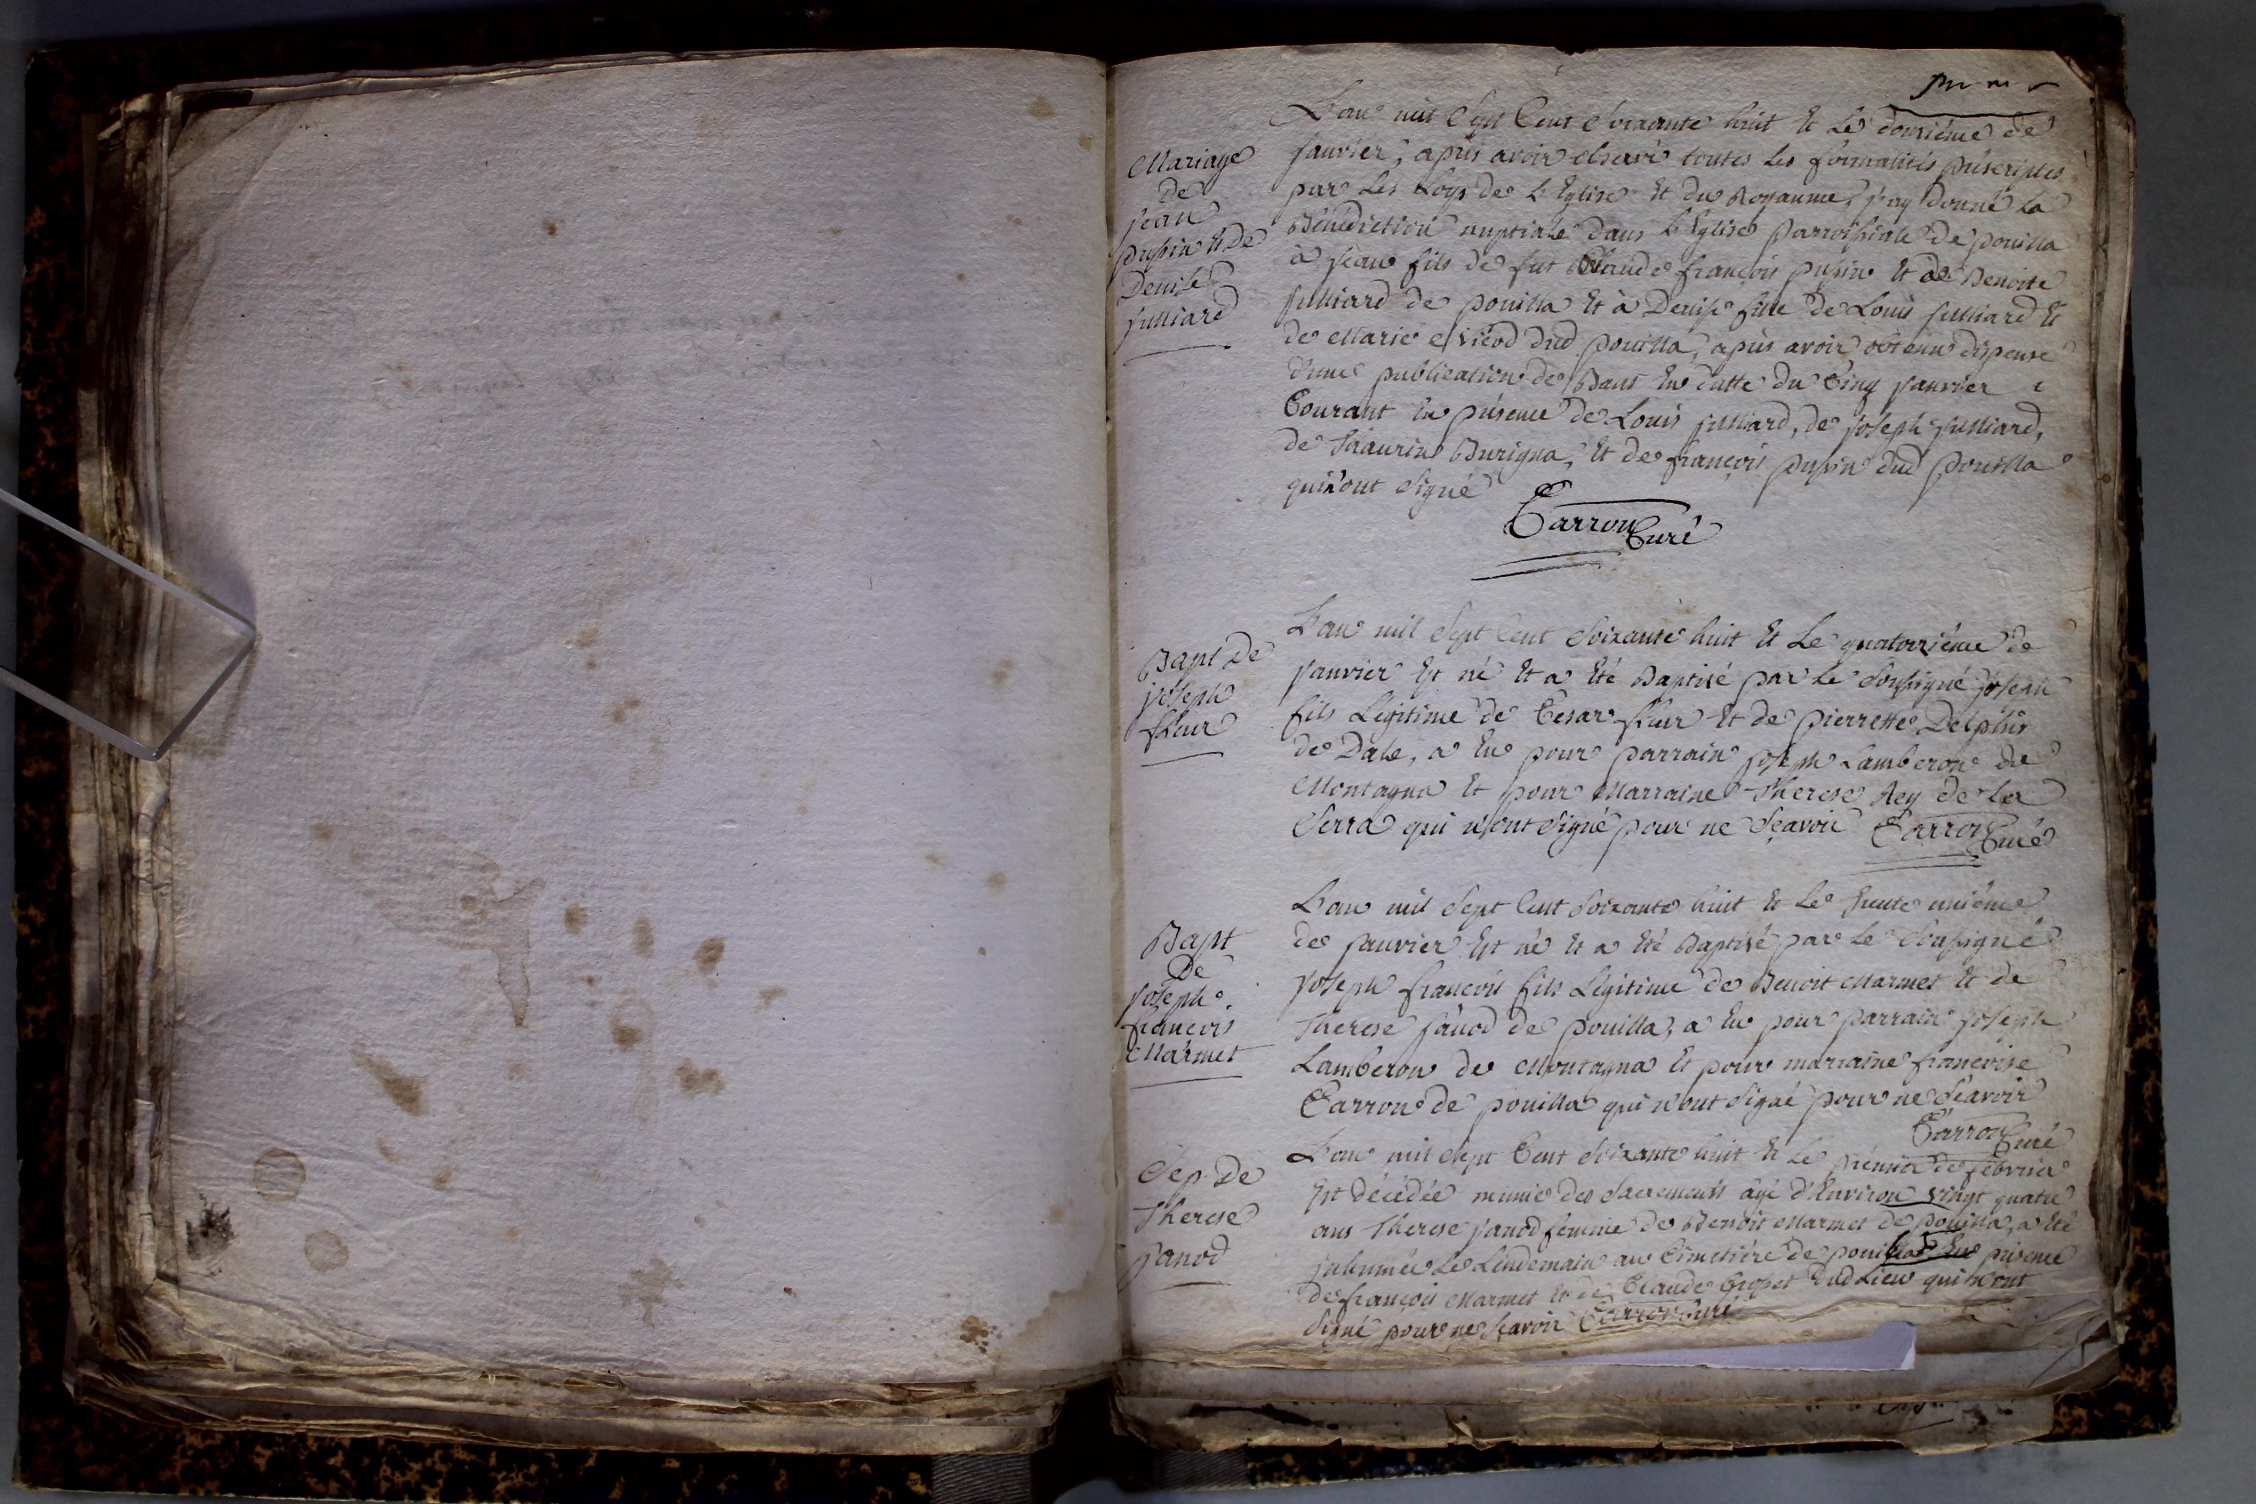 Mariage
de
jean
pupin et De
Denise
julliard
L'an mil sept Cent soixante huit et Le douzième de
janvier, après avoir observé toutes les formalités préscriptes
par Les Loys de L'Eglise et du Royaume, j'ay donné La
Bénédiction nuptiale dans L'Eglise parroissiale de pouilla
à jean fils de fut Claude françois pupin et de Benoite
julliard de pouilla et à Denise fille de Louis julliard et
de Marie Vicod dud pouilla, après avoir obtenu dispense
d'une publication de Bans en datte du Cinq janvier
Courant en présence de Louis julliard, de joseph julliard,
de Thaurin Burigna, et de françois pupin dud pouilla
qui n'ont signé
Carron Curé
Bapt De
joseph
fleur
L'an mil sept Cent soixante huit et Le quatorzième de
janvier Est né et a été Baptisé par Le soussigné joseph
fils Légitime de Cesar fleur et de pierrette Delphin
de Dale, a Eu pour parrain joseph Lamberon de
Montagna et pour Marraine Therese Rey de La
Serra qui n'ont signé pour ne sçavoir Carron Curé
Bapt
De
joseph
françois
Marmet
L'an mil sept Cent soixante huit et Le trente unième
de janvier Est né et a été Baptisé par Le soussigné
joseph françois fils Légitime de Benoit Marmet et de
Therese janod de pouilla, a Eu pour parrain joseph
Lamberon de Montagna et pour marraine françoise
Carron de pouilla qui n'ont signé pour ne sçavoir
Carron Curé
Sep. De
Therese
janod
L'an mil sept Cent soixante huit et Le prémier de février
Est décédée munie des sacrements âgé d'Environ vingt quatre
ans Therese janod femme de Benoit Marmet de pouilla, a été
inhumée Le Lendemain au Cimetière de pouilla en présence
de françois Marmet et de Claude dud Lieu qui n'ont
signé pour ne sçavoir Carron Curé